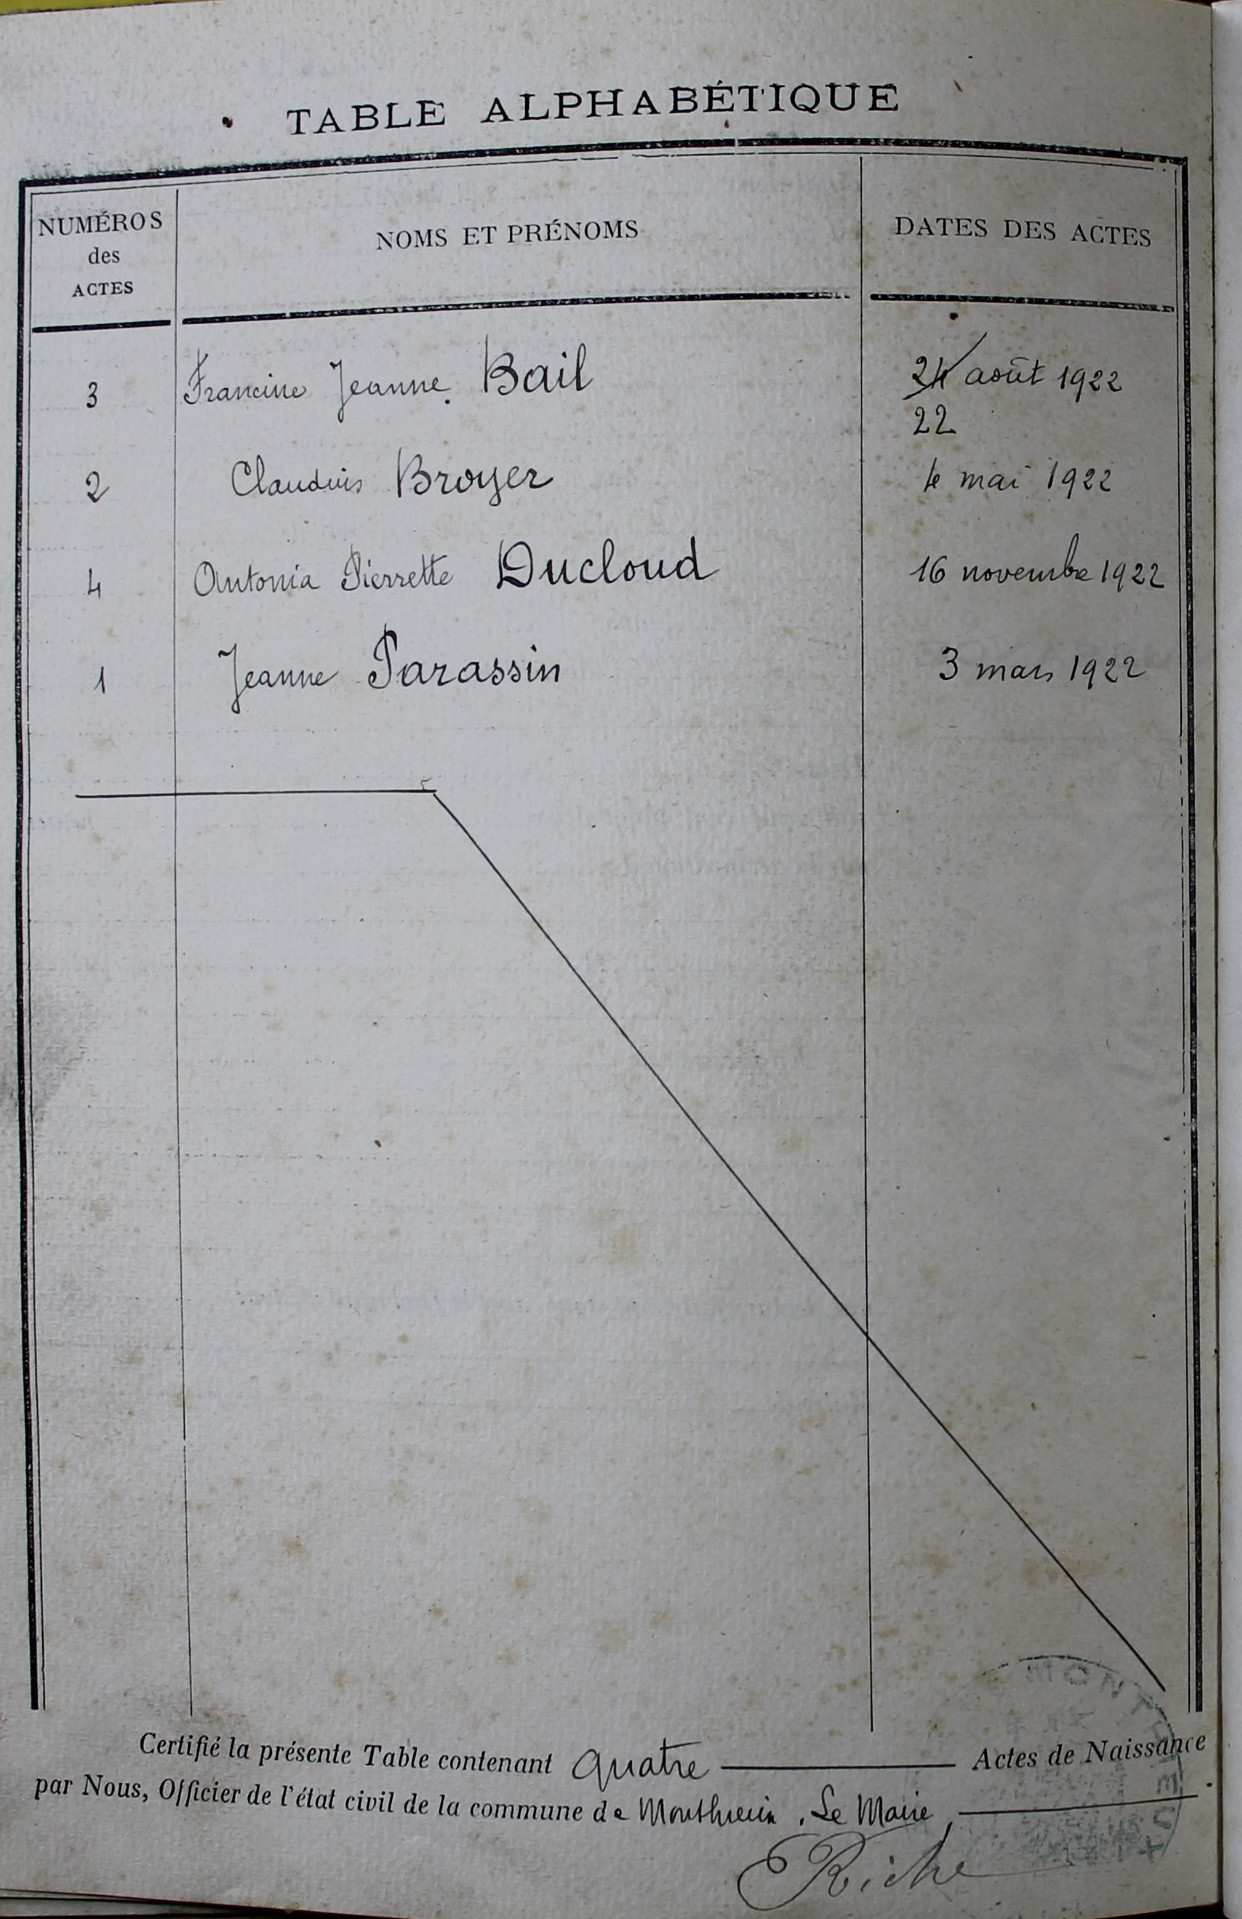 TABLE ALPHABÉTIQUE
NUMÉROS des ACTES NOMS ET PRÉNOMS DATES DES ACTES
3 Francine Jeanne. Bail 24 août 1922
22
2 Claudius Broyer 4 mai 1922
4 Antonia Pierrette Ducloud 16 novembre 1922
1 Jeanne Parassin 3 mars 1922
Certifié la présente Table contenant quatre Actes de Naissance
par Nous, Officier de l'état civil de la commune de . Le Maire
E Riche